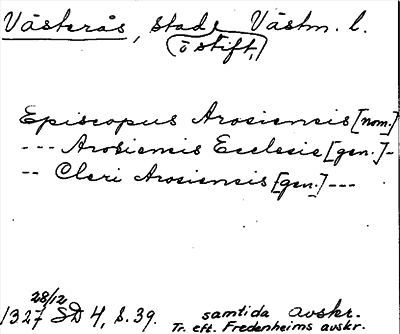 Västerås, stad, Västm. l.
o stift,
Episcopus Arosiensis [nom.]
--- Arosiensis Ecclesie [gen.] -
-- Cleri Arosiensis [gen.] ---
28/12
1327 SD 4, s. 39. samtida avskr.
Tr. eft. Fredenheims avskr.